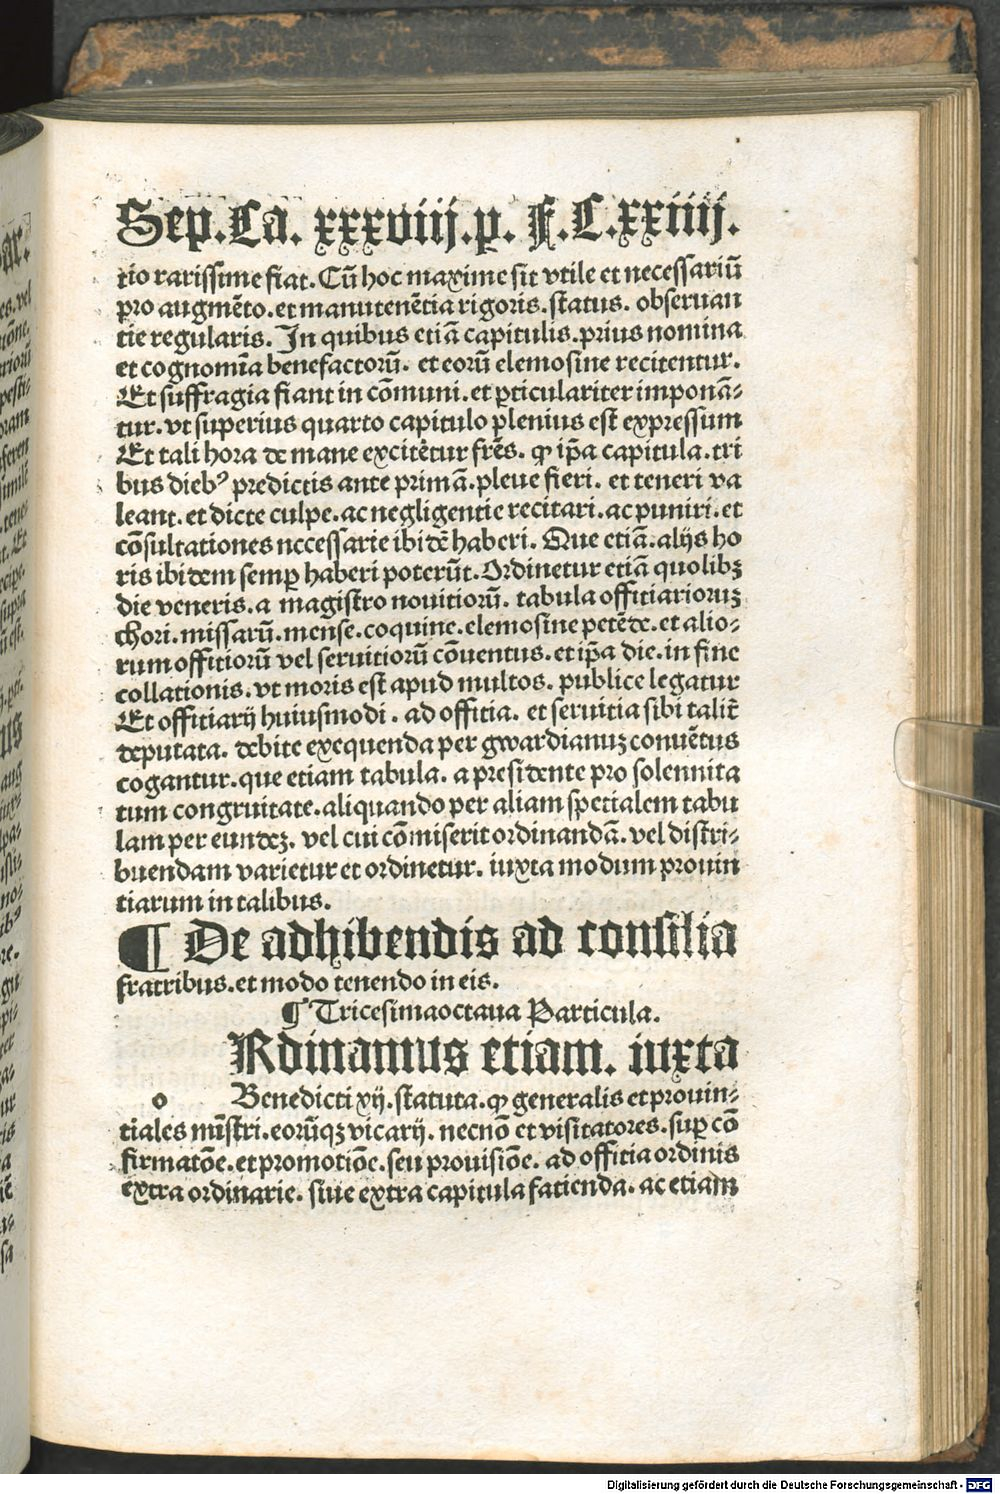 Sep.Ca. xxxviij.p. F.C.xxiiij.
tio rarissime fiat. Cū hoc maxime sit vtile et necessariū
pro augmēto. et manutenētia rigoris. status. obseruan
tie regularis. In quibus etiā capitulis. prius nomina
et cognomīa benefactorū. et eorū elemosine recitentur.
Et suffragia fiant in cōmuni. et pticulariter imponā⸗
tur. vt superius quarto capitulo plenius est expressum
Et tali hora de mane excitētur frēs. ꝙ ip̄a capitula. tri
bus dieb⁹ predictis ante primā. pleue fieri. et teneri va
leant. et dicte culpe. ac negligentie recitari. ac puniri. et
cōsultationes necessarie ibidē haberi. Que etiā. alijs ho
ris ibidem semꝑ haberi poterūt. Ordinetur etiā quolibꝫ
die veneris. a magistro nouitiorū. tabula offitiarioruꝫ
chori. missarū. mense. coquine. elemosine petēde. et alio⸗
rum offitiorū vel seruitiorū cōuentus. et ip̄a die. in fine
collationis. vt moris est apud multos. publice legatur
Et offitiarij huiusmodi. ad offitia. et seruitia sibi talit̄
deputata. debite exequenda per gwardianuꝫ conuētus
cogantur. que etiam tabula. a presidente pro solennita
tum congruitate. aliquando per aliam spetialem tabu
lam per eundeꝫ. vel cui cōmiserit ordinandā. vel distri⸗
buendam varietur et ordinetur. iuxta modum prouin
tiarum in talibus.
¶ De adhibendis ad consilia
fratribus. et modo tenendo in eis.
¶ Tricesimaoctaua Particula.
o Rdinamus etiam. iuxta
Benedicti xij. statuta. ꝙ generalis et prouin⸗
tiales mīstri. eorūqꝫ vicarij. necnō et visitatores. suꝑ cō
firmatōe. et promotiōe. seu prouisiōe. ad offitia ordinis
extra ordinarie. siue extra capitula fatienda. ac etiam
Digitalisierung gefördert durch die Deutsche Forschungsgemeinschaft - DFG